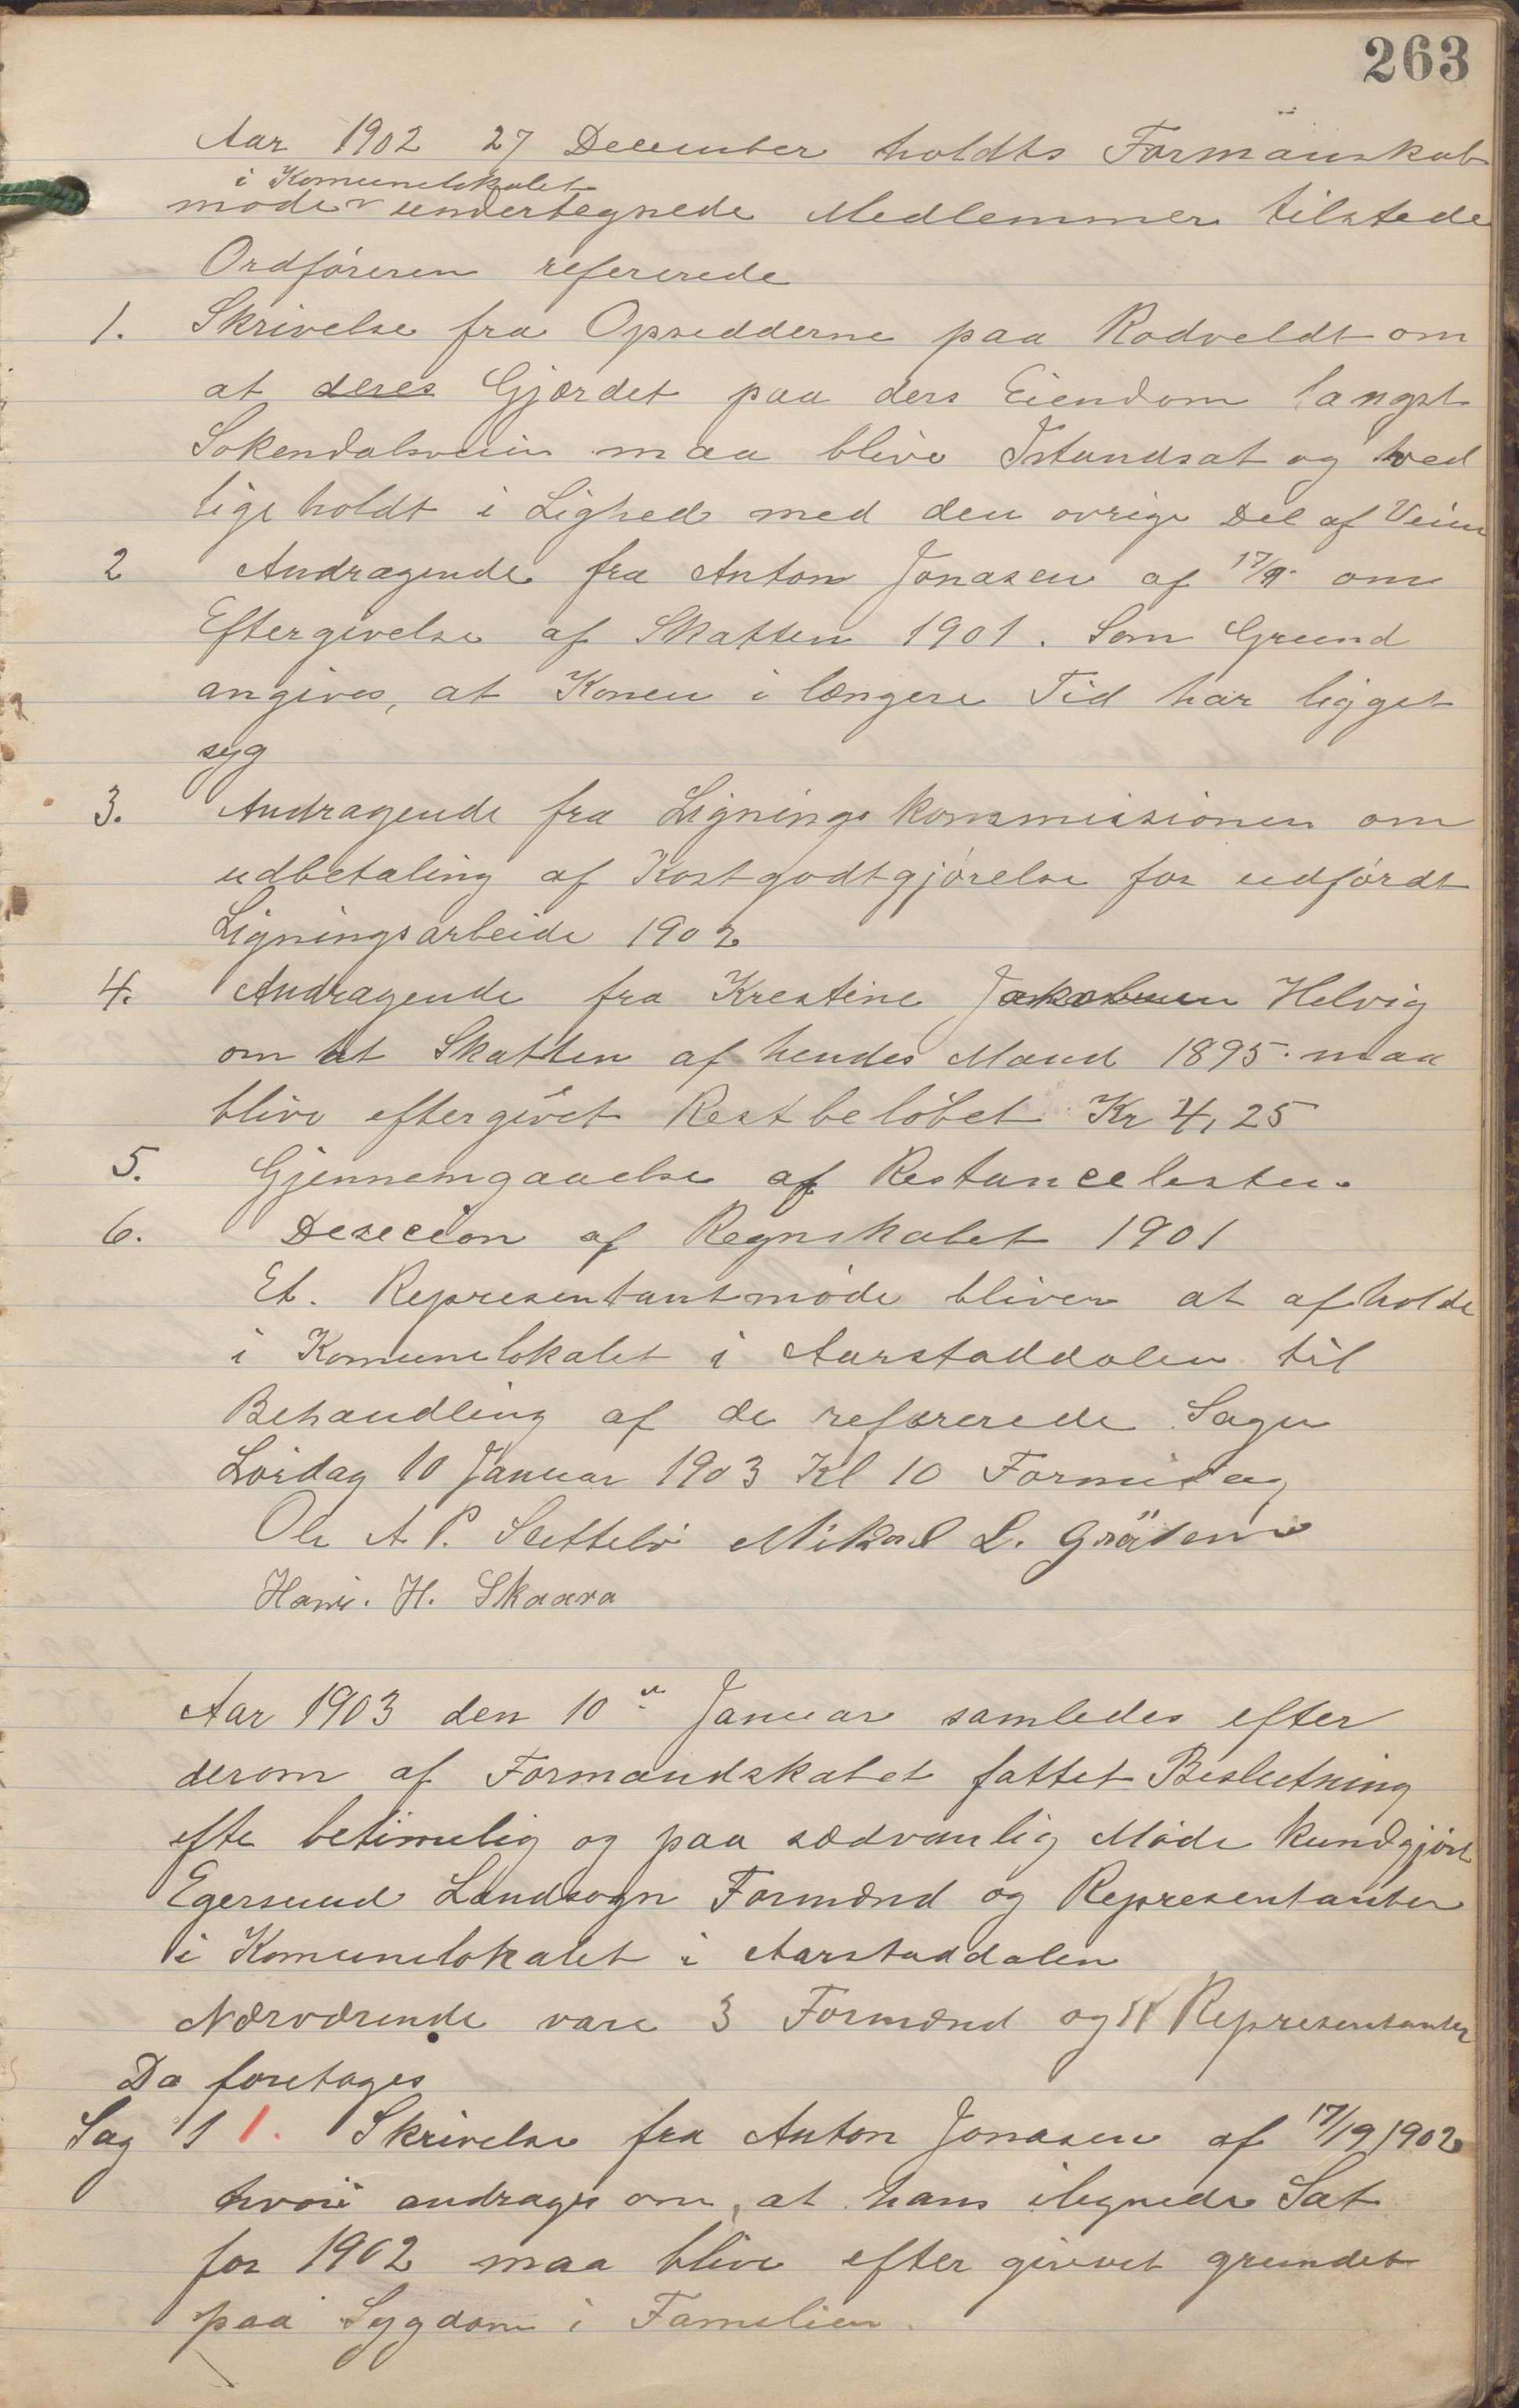 263
Aar 1902 27 December holdts Formänskab
i Komunelokalet
møde undertegnede Medlemmer tilstede
Ordføreren refererede
1. Skrivelse fra Opsedderne paa Rodveldt om
at deres Gjærdet paa ders Eiendom langst
Sokendalsveien maa blive Istandsat og ved
lige holdt i Lighed med den øvrige Del af Veien
2 Andragende fra Anton Jonasen af 17/9 om
Eftergivelse af Skatten 1901. Som Grund
angives, at Konen i længere Tid har ligget
syg
3. Andragende fra Lignings kommissionen om
udbetaling af Kostgodtgjørelse for udførdt
Ligningsarbeide 1902
4. Andragende fra Krestine Jakobsen Helvig
om at Skatten af hendes Mand 1895 maa
blive eftergivet Restbeløbet Kr 4,25
5. Gjennemgaaelse af Restancelesten.
6. Desecion af Regnskabet 1901
Et. Representantmøde bliver at afholde
i Komunelokalet i Aarstaddalen til
Behandling af de refererede Sager
Lørdag 10 Januar 1903 Kl 10 Formidag
Ole A. P. Slettebø Mikal L. Gräsen
Hans. H. Skaara
Aar 1903 den 10de Januar samledes efter
derom af Formandskabet fattet Beslutning
efte betimelig og paa sædvanlig Måde kundgjort
Egersund Landsogn Formænd og Representanter
i Komunelokalet i Aarstaddalen
Nærværende vare 3 Formænd og 11 Representanter
Da foretages
Sag 1 1. Skrivelse fra Anton Jonasen af 17/9 1902
hvori andrages om, at hans ilegnede Sat
for 1902 maa blive efter givvet grundet
paa Sygdom i Familien.